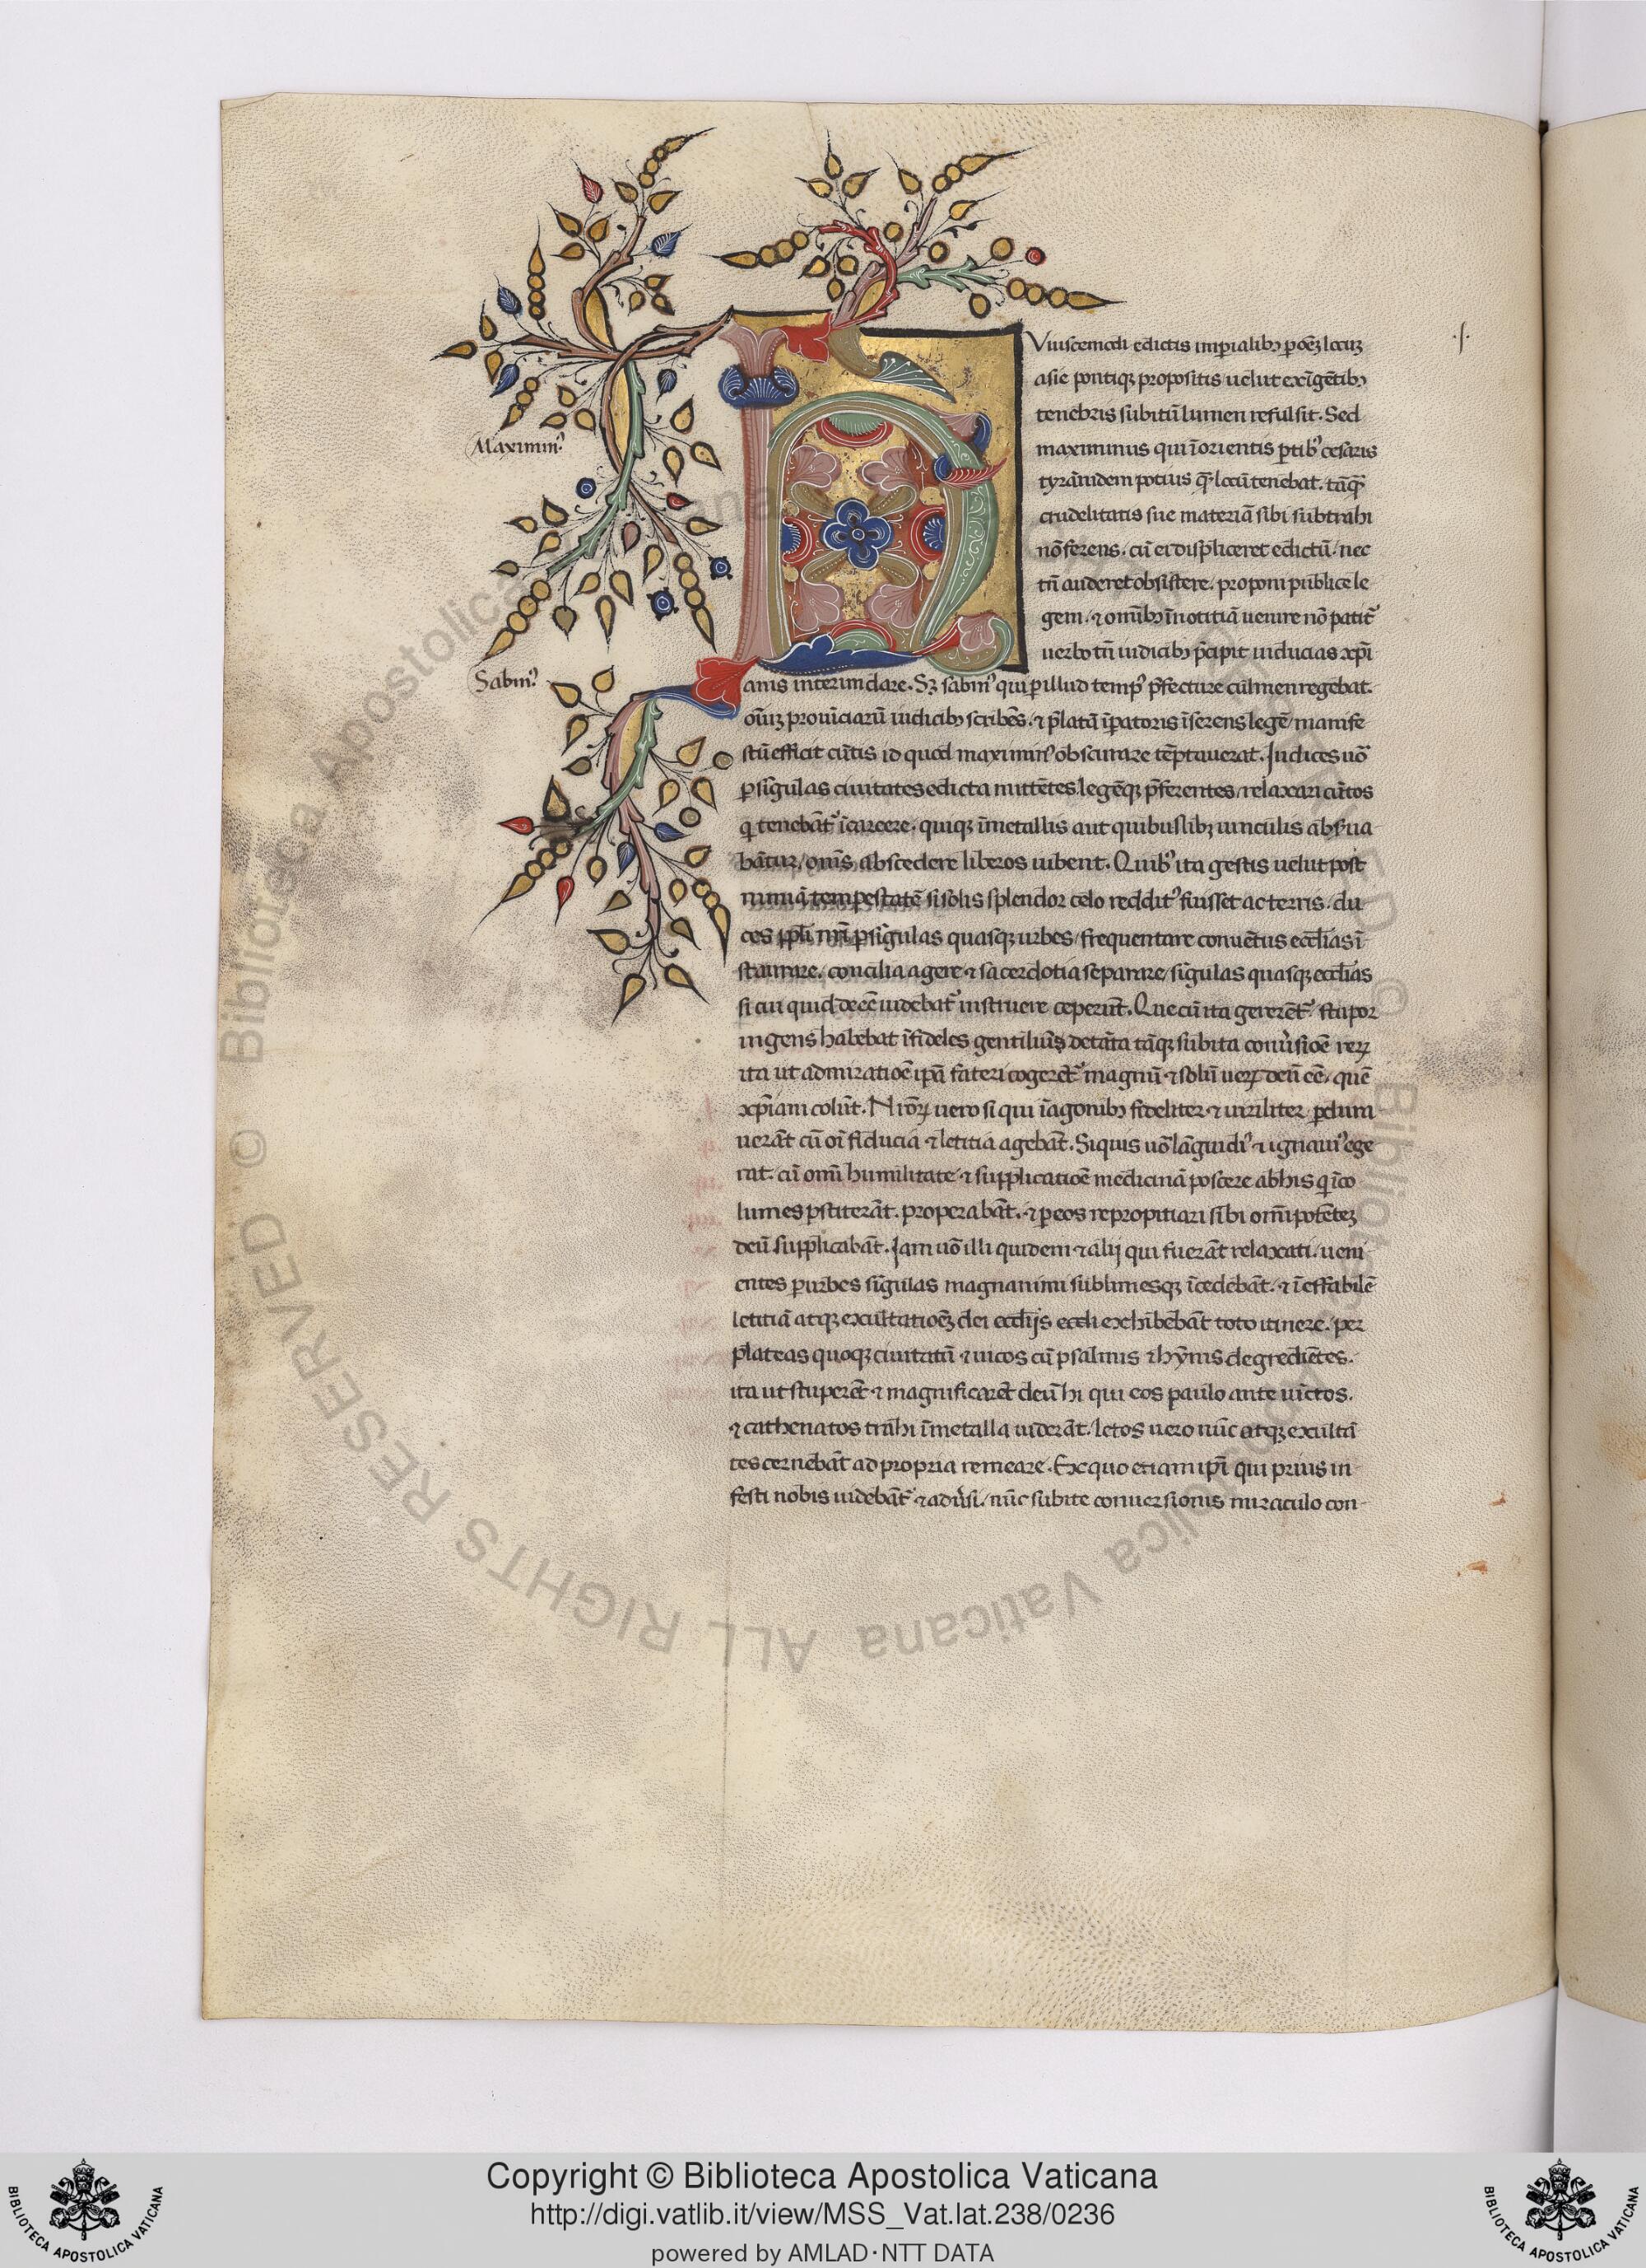 Viuscemodi edictis imꝑialibꝫ ꝑ oēꝫ locuꝫ
.I.
asie pontiqꝫ propositis uelut exīgētibꝫ
tenebris subitū lumen refulsit. Sed
maximinus qui ī orientis ꝑtibꝰ cesaris
Maximinꝰ
tyrānidem potius ꝙ̄ locū tenebat. tāꝙ̄
crudelitatis sue materiā sibi subtrahi
nō ferens. cū ei displiceret edictū. nec
tn̄ auderet obsistere. proponi publice le
gem. ⁊ omībꝫ ī notitiā uenire nō patit̄
uerbo tn̄ iudicibꝫ p̄cipit inducias xp̄i
Sabinꝰ
anis interim dare. Sꝫ sabinꝰ qui ꝑ illud tempꝰ p̄fecture culmen regebat.
oīuꝫ prouīciarū iudicibꝫ scribēs. ⁊ p̄latā īꝑatoris īserens legē manife
stū efficit cūtis id quod maximinꝰ obscurare tēptauerat. Iudices uō
ꝑ sīgulas ciuitates edicta mittētes legēqꝫ p̄ferentes relaxari cūtos
q tenebāt̄ ī carcere. quiqꝫ ī metallis aut quibuslibꝫ uinculis abſua
bātur, om̄s abscedere liberos iubent. Quibꝰ ita gestis uelut post
nimiā tempestatē si solis splendor celo redditꝰ fuisset ac terris. du
ces ip̄li nr̄i ꝑ sīgulas quasqꝫ urbes frequentare conuētus ecclīas ī
staurare. concilia agere ⁊ sacerdotia separare sīgulas quasqꝫ ecclīas
si cui quid deēē uidebat̄ instruere ceperūt. Que cū ita gererēt̄ stupor
ingens habebat īfideles gentiliūꝫ de tāta tāqꝫ subita conu̓sioē reꝝ
ita ut admiratioē ip̄a fateri cogerēt̄ magnū ⁊ solū ueꝝ deū eē, quē
xp̄iani colūt. Nr̄oꝝ uero si qui ī agonibꝫ fideliter ⁊ uiriliter ꝑdura
uerāt cū oī fiducia ⁊ letitia agebāt. Siquis uō lāguidiꝰ ⁊ ignauiꝰ ege
rat. cū omī humilitate ⁊ supplicatioē medicinā poscere ab his q īco
lumes ꝑstiterāt. properabāt. ⁊ ꝑ eos repropitiari sibi omīpotēteꝫ
deū supplicabāt. Iam uō illi quidem ⁊ alij qui fuerāt relaxati. ueni
entes ꝑ urbes sīgulas magnanimi sublimesqꝫ īcedebāt. ⁊ īeffabilē
letitiā atqꝫ exultatioēꝫ dei ecclījs exhibebāt toto itinere. per
plateas quoqꝫ ciuitatū ⁊ uicos cū psalmis ⁊ hȳnis degrediētes.
ita ut stuperēt ⁊ magnificarēt deū hi qui eos paulo ante uīctos.
⁊ cathenatos trahi ī metalla uiderāt. letos uero nūc atqꝫ exultā
tes cernebāt ad propria remeare. Ex quo etiam ip̄i qui prius in
festi nobis uidebāt̄ ⁊ adu̓si. nūc subite conuersionis miraculo con
Copyright © Biblioteca Apostolica Vaticana
http://digi.vatlib.it/view/MSS_Vat.lat.238/0236
powered by AMLAD·NTT DATA
BIBLIOTECA APOSTOLICA VATICANA
BIBLIOTECA APOSTOLICA VATICANA
© Biblioteca Apostolica Vaticana ALL RIGHTS RESERVED